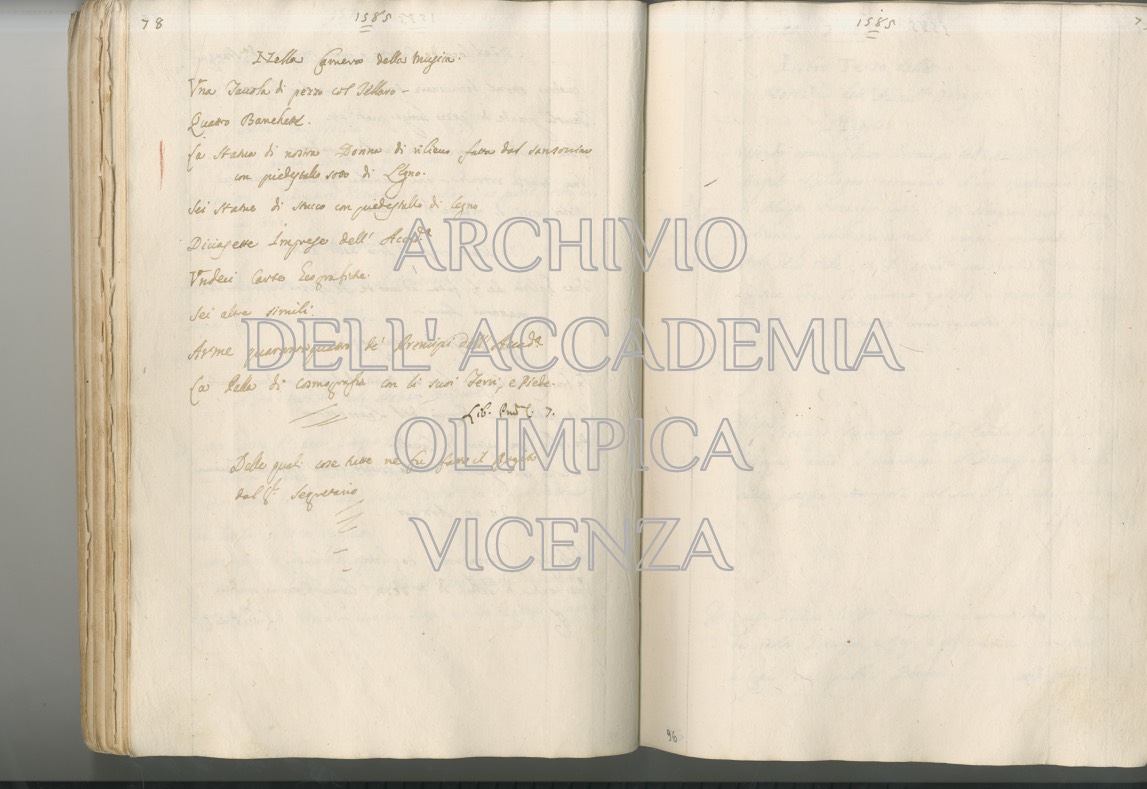 78
1585
Nella Camera della Musica.
Una Tavola di pezzo col Tellaro -
Quatro Banchette.
La statua di nostra Donna di rilievo fatta dal sansovino
con piedestallo sotto di Legno.
Sei statue di stucco con piedestallo di legno
Diciasette Imprese dell' Accad.a
Undeci Carte
Sei altre simili.
Arme quarantaquattro de' Prencipi dell' Accad.a
La Palla di cosmografia con li suoi Ferri, e Piede.
Lib. 7.
Delle quali cose tutte ne fu fatto il Rogito
dal S.r Segretario
1585
96
ARCHIVIO
DELL' ACCADEMIA
OLIMPICA
VICENZA